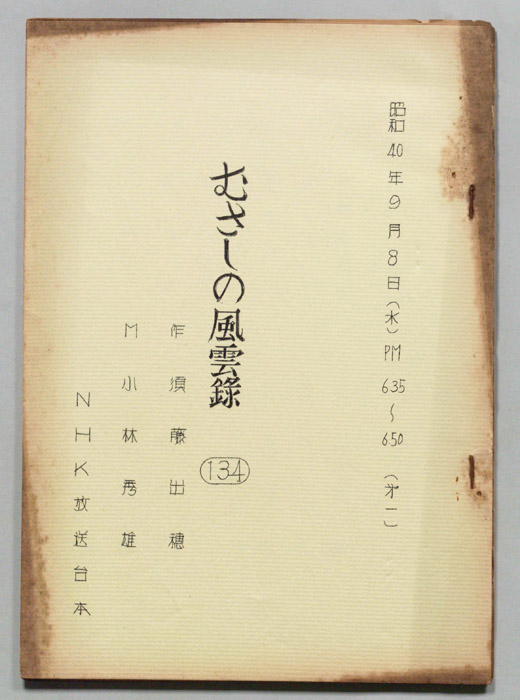 昭和40年9月8日(水)PM 6.35〜6.50 (才一)
むさしの風雲錄 134
作 須藤出穂
M 小林秀雄
NHK放送台本